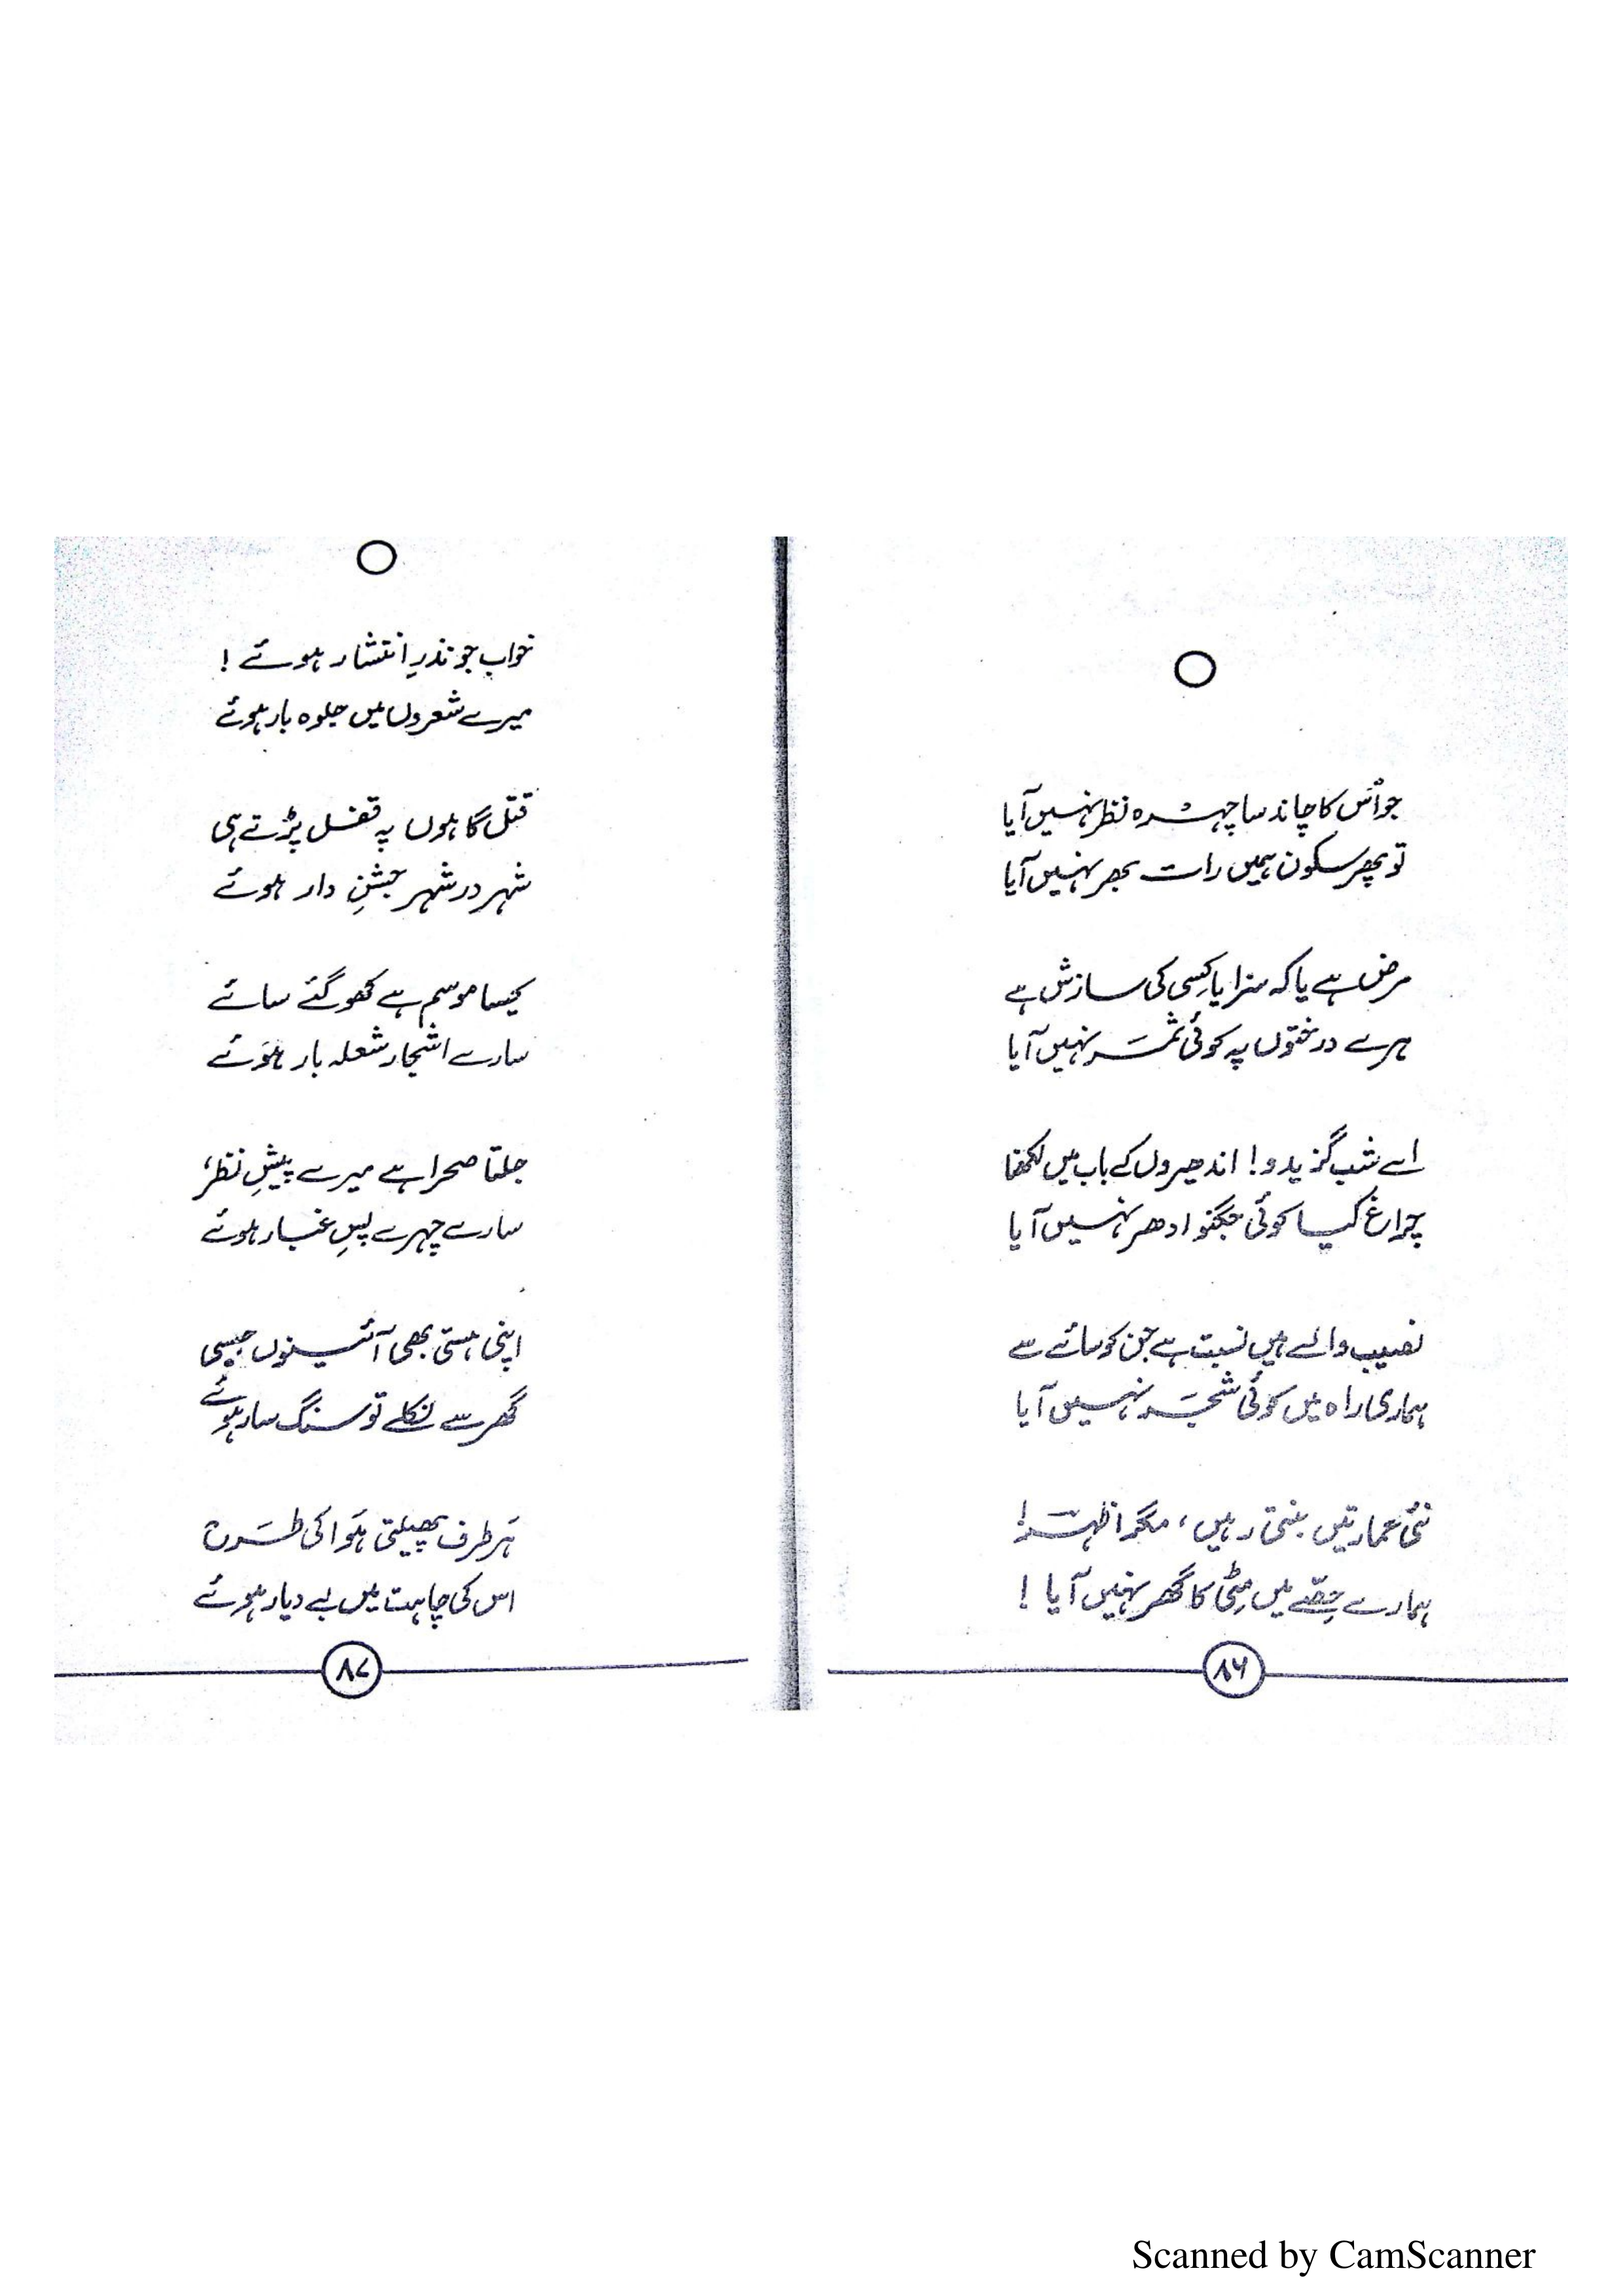 جو اُس کا چاند سا چہرہ نظر نہیں آیا
تو پھر سکون ہمیں رات بھر نہیں آیا
مرض ہے یا کہ سزا یا کِسی کی سازش ہے
ہرے درختوں پہ کوئی ثمَر نہیں آیا
اے شب گزیدو! اندھیروں کے باب میں لکھنا
چراغ کیا کوئی جگنو ادھر نہیں آیا
نصیب والے ہیں نسبت ہے جن کو سائے سے
ہماری راہ میں کوئی شجَر نہیں آیا
نئی عمارتیں بنتی رہیں، مگر اظہر!
ہمارے حِصّے میں مِٹی کا گھر نہیں آیا !
۸۶
خواب جو نذرِ انتشار ہوئے !
میرے شعروں میں جلوہ بار ہوئے
قتل گاہوں پہ قفل پڑتے ہی
شہر در شہر جشنِ دار ہوئے
کیسا موسم ہے کھو گئے سائے
سارے اشجار شعلہ بار ہوئے
جلتا صحرا ہے میرے پیشِ نظر،
سارے چہرے پسِ غبار ہوئے
اپنی ہستی بھی آئینوں جیسی
گھر سے نکلے تو سنگ سار ہوئے
ہَر طرف پھیلتی ہَوا کی طرَح
اس کی چاہت میں بے دیار ہوئے
۸۷
Scanned by CamScanner